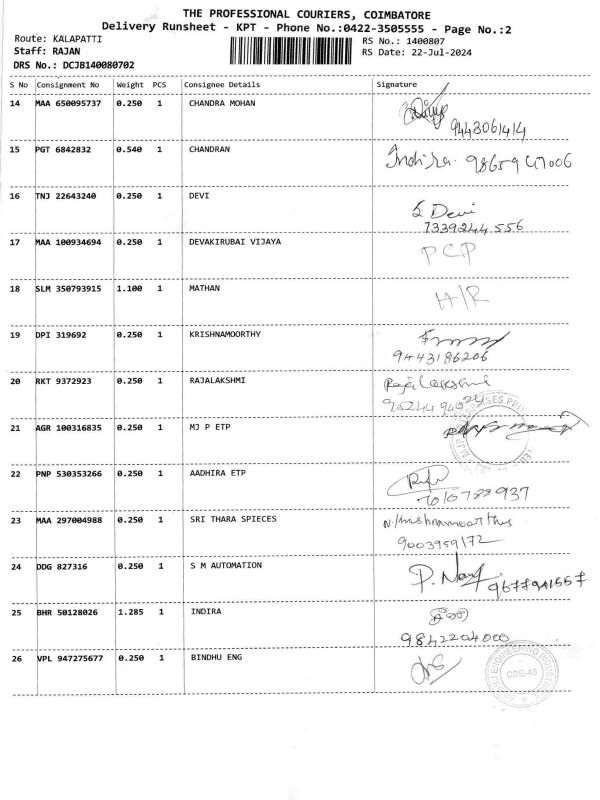 THE PROFESSIONAL COURIERS, COIMBATORE
Delivery Runsheet - KPT - Phone No.:0422-3505555 - Page No.:2
Route: KALAPATTI
RS No.: 1400807
Staff: RAJAN
RS Date: 22-Jul-2024
DRS No.: DCJB140080702
S No Consignment No Weight PCS Consignee Details Signature
14 MAA 650095737 0.250 1 CHANDRA MOHAN
9443061414
15 PGT 6842832 0.540 1 CHANDRAN Indira.
16 TNJ 22643240 0.250 1 DEVI
S Devi
7339244556
17 MAA 100934694 0.250 1 DEVAKIRUBAI VIJAYA
PCP
18 SLM 350793915 1.100 1 MATHAN
H/R
19 DPI 319692 0.250 1 KRISHNAMOORTHY
9443186206
20 RKT 9372923 0.250 1 RAJALAKSHMI Raja Lakshmi
21 AGR 100316835 0.250 1 MJ P ETP
22 PNP 530353266 0.250 1 AADHIRA ETP
7010788937
23 MAA 297004988 0.250 1 SRI THARA SPIECES
9003959172
24 DDG 827316 0.250 1 S M AUTOMATION
25 BHR 50128026 1.285 1 INDIRA
9842204000
26 VPL 947275677 0.250 1 BINDHU ENG